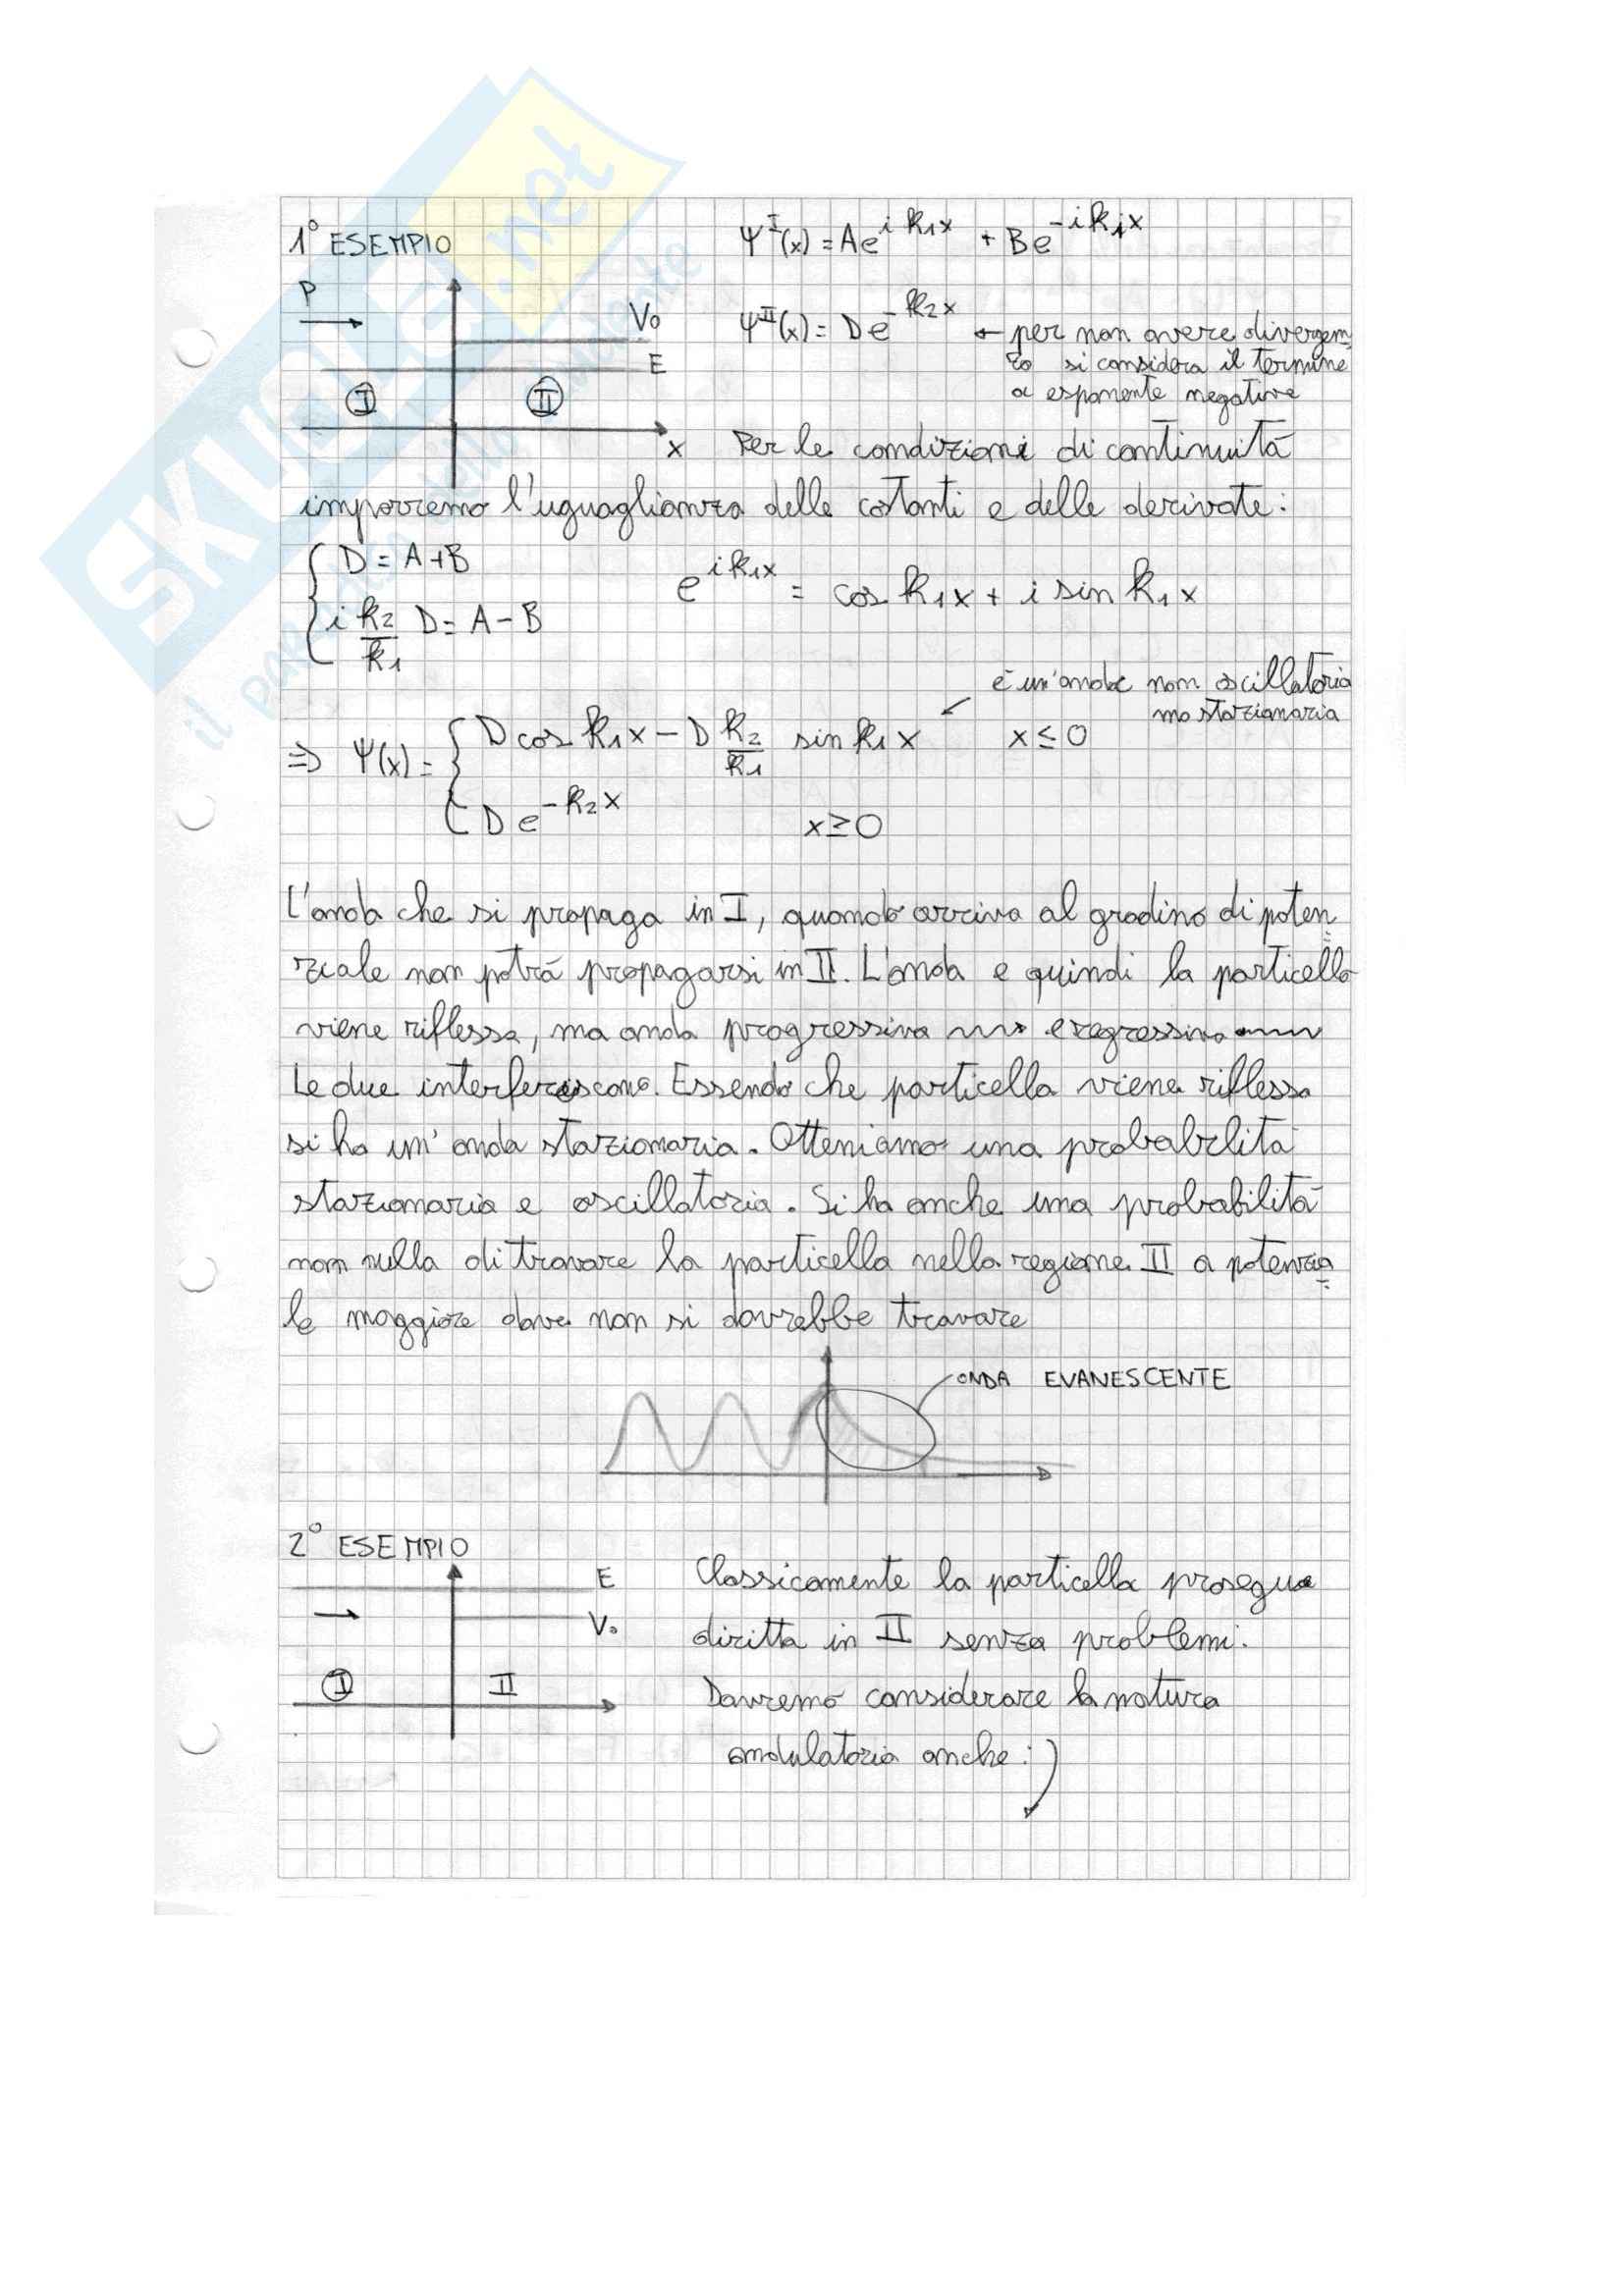 1° ESEMPIO
Ψ^I(x) = Ae^{i k₁x} + Be^{-i k₁x}
P
V₀
Ψ^II(x) = De^{-k₂x} ← per non avere divergen=
E
za si considera il termine
I II
a esponente negativo
x Per le condizioni di continuità
imporremo l'uguaglianza delle costanti e delle derivate:
D = A+B
e^{i k₁x} = cos k₁x + i sin k₁x
i k₂/k₁ D = A - B
è un'onda non oscillatoria
ma stazionaria
⇒ Ψ(x) = { D cos k₁x - D k₂/k₁ sin k₁x x ≤ 0
D e^{-k₂x} x ≥ 0
L'onda che si propaga in I, quando arriva al gradino di poten=
ziale non potrà propagarsi in II. L'onda e quindi la particella
viene riflessa, ma onda progressiva e regressiva
Le due interferiscono. Essendo che particella viene riflessa
si ha un'onda stazionaria. Otteniamo una probabilità
stazionaria e oscillatoria. Si ha anche una probabilità
non nulla di trovare la particella nella regione II a potenzia=
le maggiore dove non si dovrebbe trovare
ONDA EVANESCENTE
2° ESEMPIO
E
Classicamente la particella prosegue
V₀
diritta in II senza problemi.
I II
Dovremo considerare la natura
ondulatoria anche:
SKUOLA.net
il paradiso dello studente